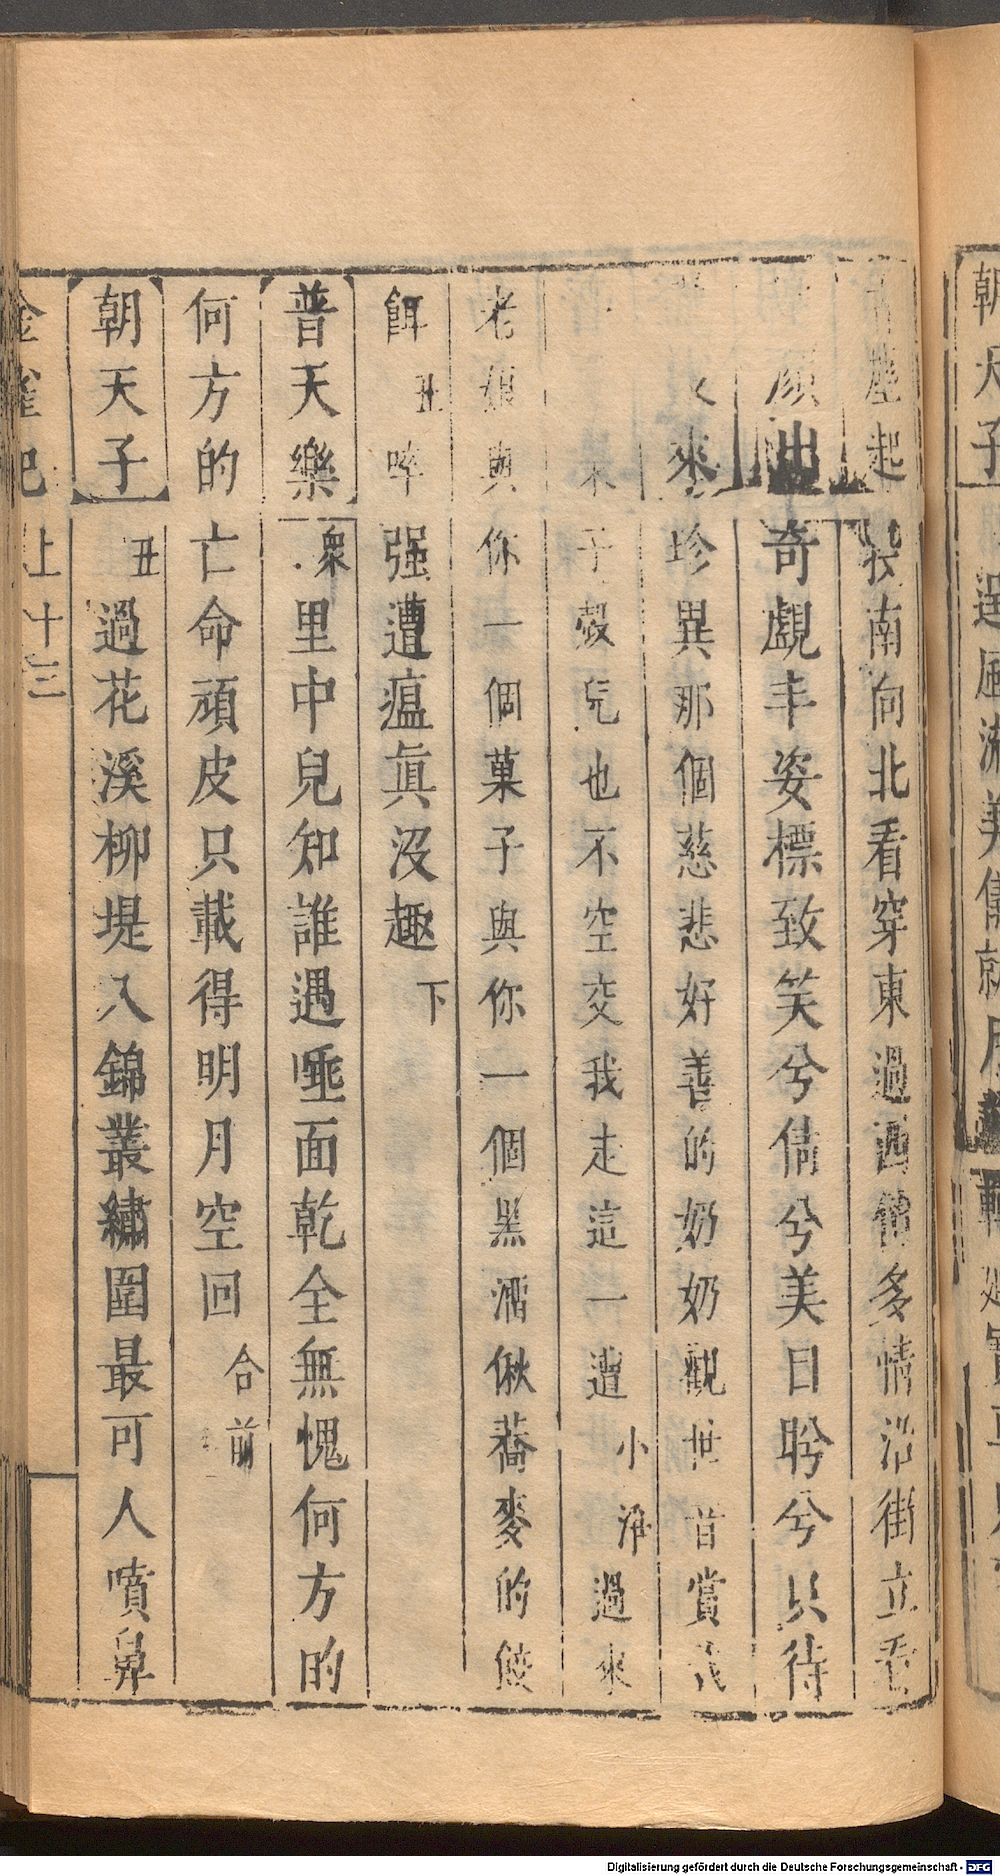 朝天子
逞風流美儀
座起 南向北看穿東過西 多情沿街立看
奇覷丰姿標致笑兮倩兮美目盼兮只待
來珍異那個慈悲好善的奶奶觀世音賞我
子殼兒也不空交我走這一遭 小淨 過來
老娘與你一個菓子與你一個黑漘偢蕎麥的餕
餌 丑 啐 强遭瘟眞沒趣 下
普天樂 衆 里中兒知誰遇唾面乾全無愧何方的
何方的亡命頑皮只載得明月空回 合前
朝天子 丑 過花溪柳堤入錦叢繡圍最可人噴鼻
金雀記 上 十三
Digitalisierung gefördert durch die Deutsche Forschungsgemeinschaft - DFG